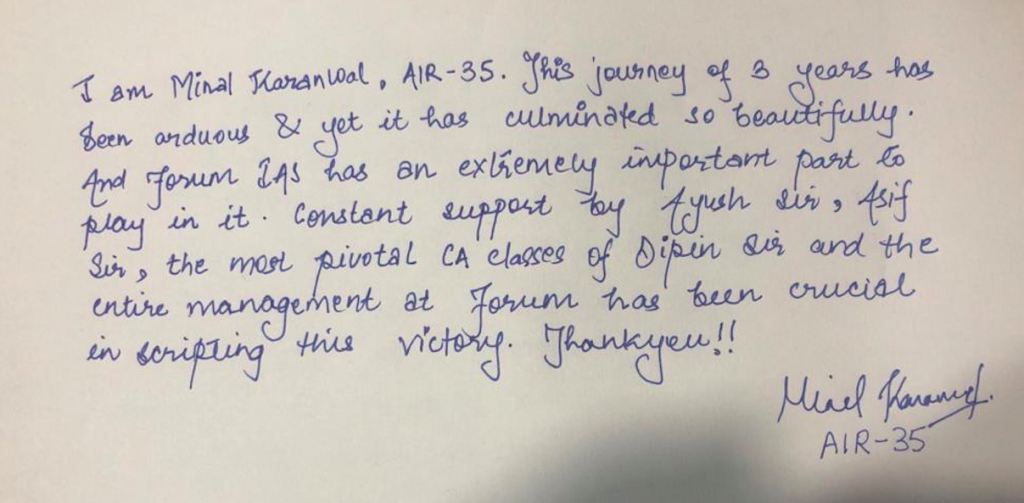 I am Minal Karanwal, AIR-35. This journey of 3 years has
been arduous & yet it has culminated so beautifully.
And Forum IAS has an extremely important part to
play in it. Constant support by Ayush Sir, Asif
Sir, the most pivotal CA classes of Dipin Sir and the
entire management at Forum has been crucial
in scripting this victory. Thankyou!!
Minal Karanwal.
AIR-35